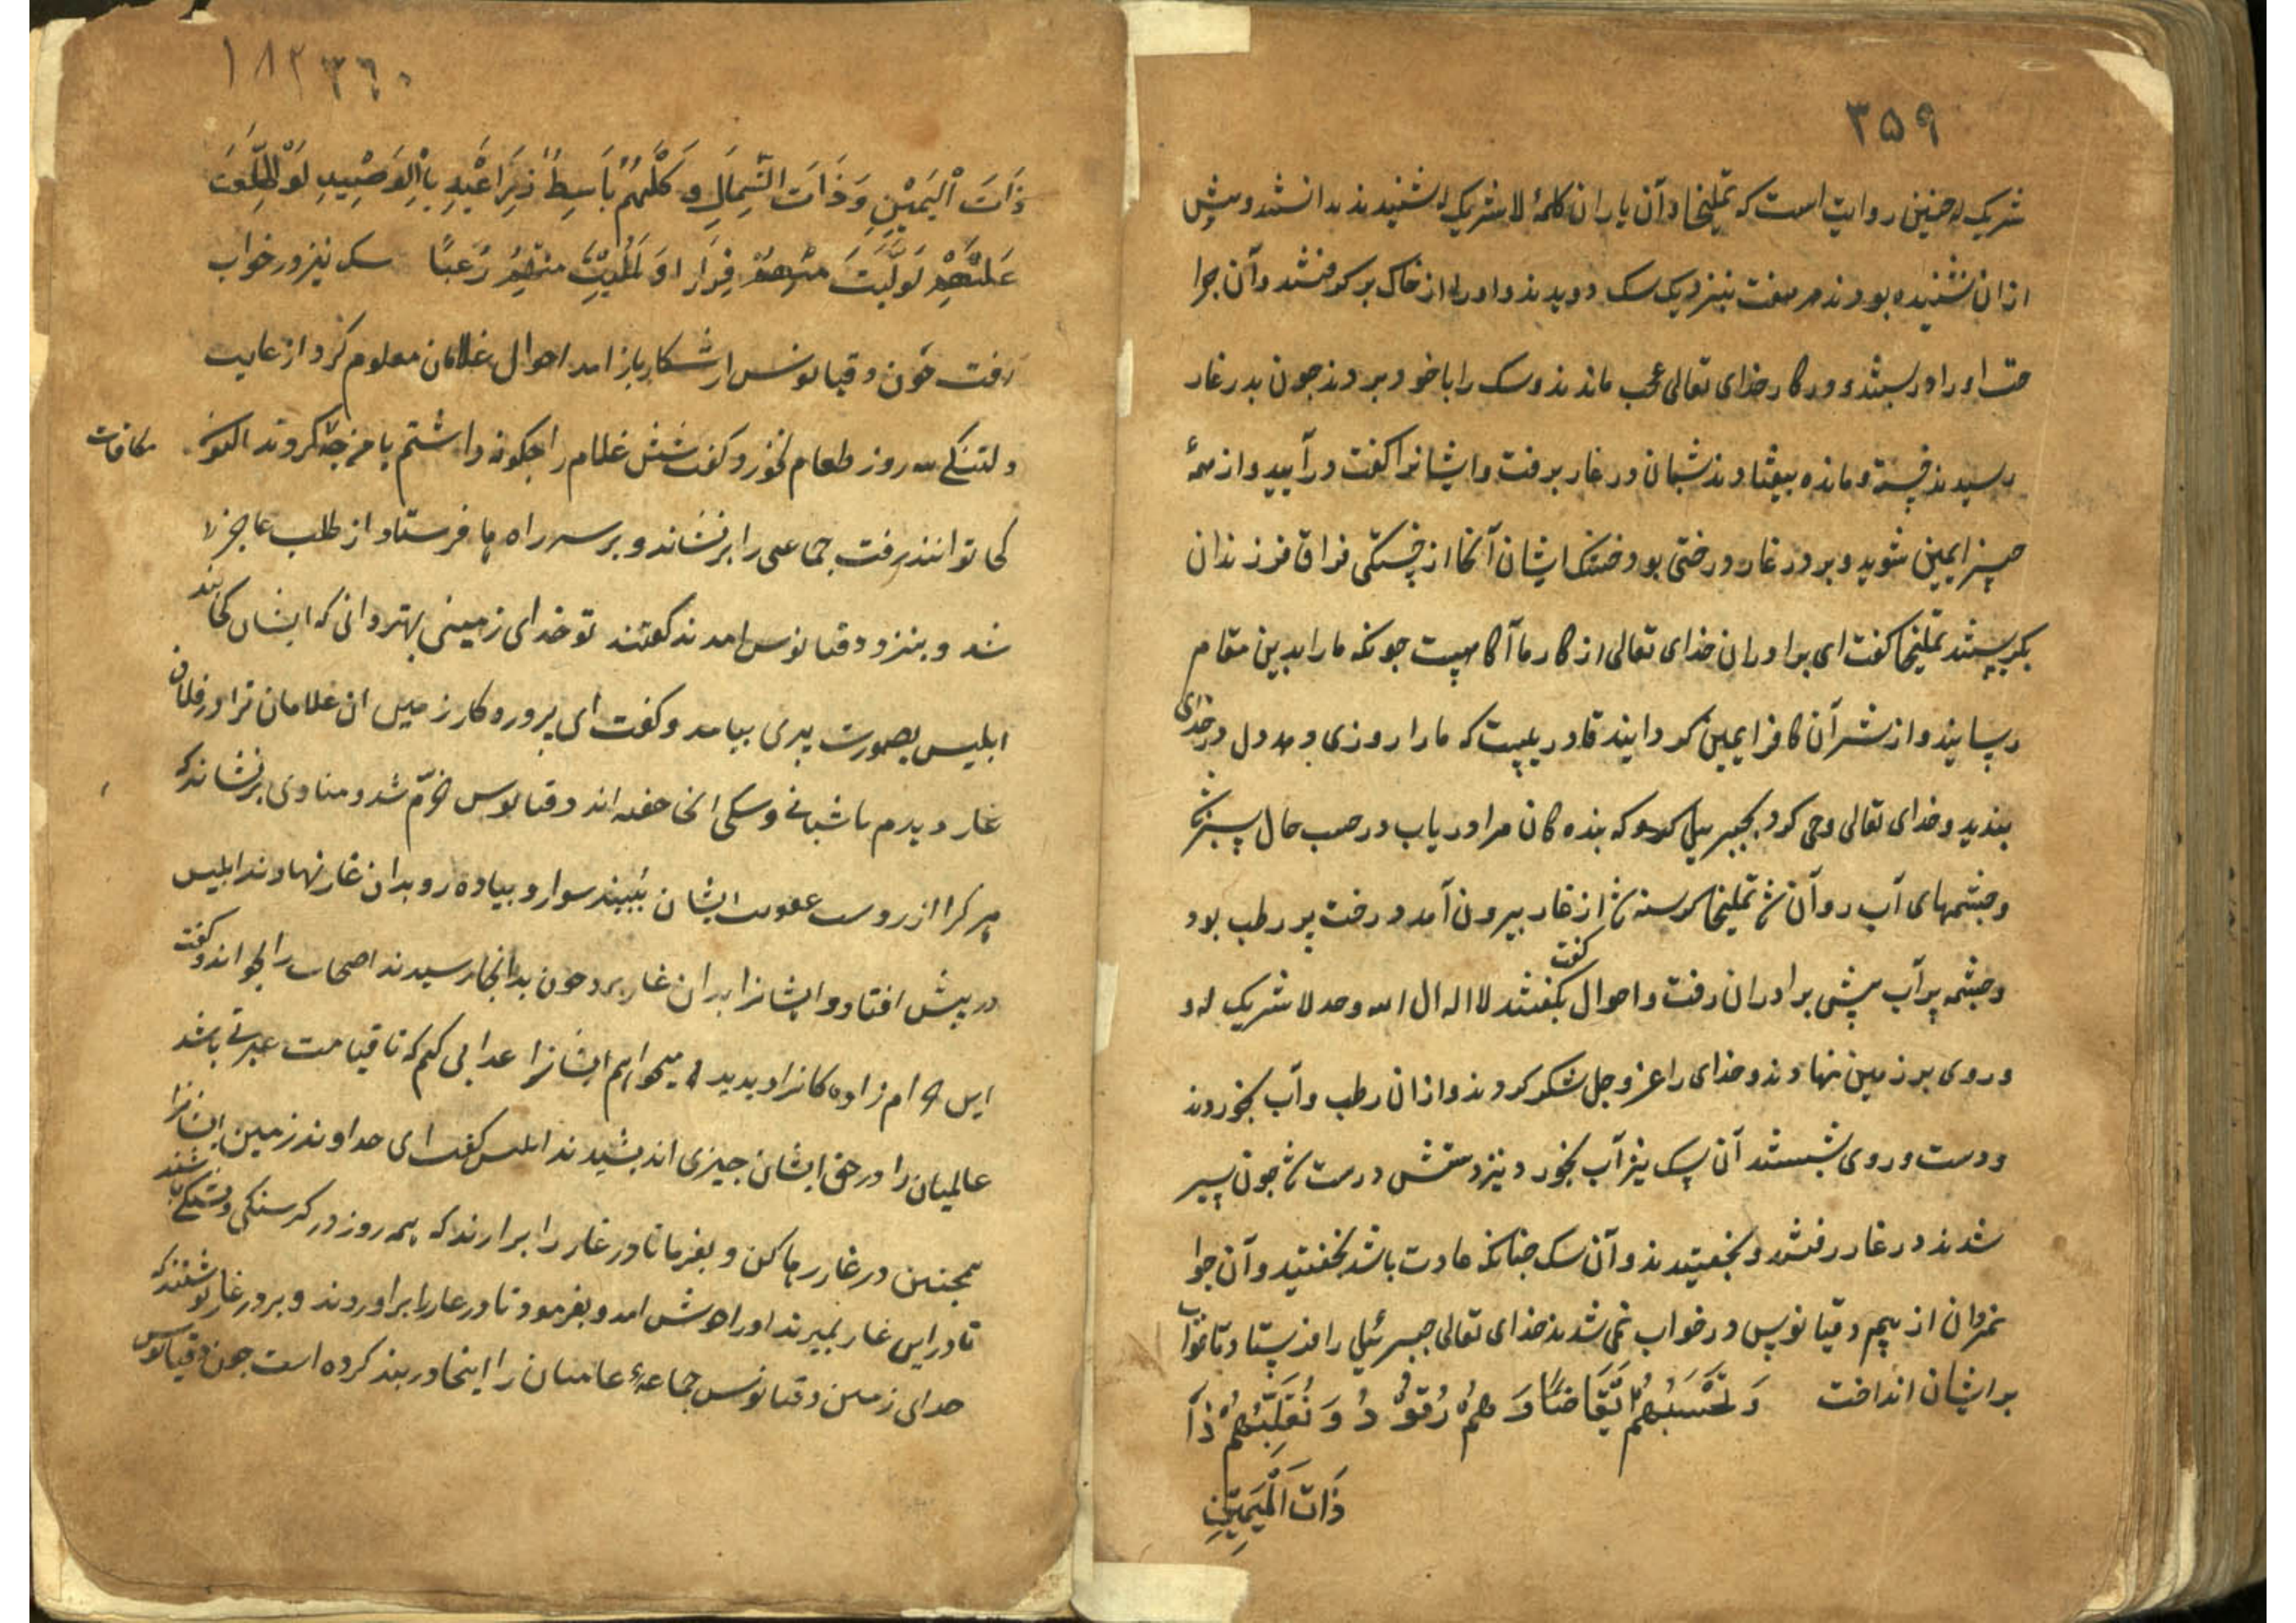 ۳۵۹
شریک له چنین روایت است که تملیخا و آن یاران کلمهٔ لا شریک له شنیدند بدانستند و پیش
ازان نشنیده بودند هر هفت بنزدیک سک دویدند و اورا از خاک بر کرفتند و آن جرا
حت اورا در بستند و در کار خدای تعالی عجب ماندند و سک را با خود بردند جون بدر غار
رسیدند خسته و مانده بیفتادند شبان در غار برفت و ایشانرا کفت در آیید و از همهٔ
چیز ایمین شوید و بر در غار درختی بود خشک ایشان آنجا از خستکی فراق فرزندان
بکریستند تملیخا کفت ای برادران خدای تعالی از کار ما آکاهست جونکه مارا بدین مقام
رسانید و از شر آن کافر ایمین کردانید قادر یست که مارا روزی دهد دل در خدای
بندید و خدای تعالی وحی کرد بجبرییل که بنده کان مرا دریاب درحب حال سبز شد
و جشمهای آب روآن شد تملیخا کرسنه شد از غار بیرون آمد درخت پر رطب بود
و جشمه پر آب پیش برادران رفت و احوال بکفت کفتند لا اله ال الله وحد لا شریک له و
و روی بر زمین نهادند و خدای را عز و جل شکر کردند و ازان رطب و آب بخوردند
و دست و روی بشستند آن سک نیز آب بخورد نیز دستش درست شد جون سیر
شدند در غار رفتند و بخفتیدند و آن سک جنانکه عادت باشد بخفتید و آن جوا
نمردان از بیم دقیانوس در خواب نمی شدند خدای تعالی جبرئیل را فرستاد تا خواب
بر ایشان انداخت وَتَحْسَبُهُمْ اَیْقَاضًا وَ هُمْ رُقُوْدُ وَ نُقَلِّبُهُمْ ذَا
ذَاتَ الْیَمِیْنِ
۱۸۲ ۳۶۰
ذَاتَ الْیَمِیْنِ وَ ذَاتَ الشِّمَالِ وَ کَلْبُهُمْ بَاسِطٌ ذِرَاعَیْهِ بِاْلوَصِیْدِ لَوْ اطَّلَعْتَ
عَلَیْهِمْ لَوَلَّیْتَ مِنْهُمْ فِرَارَا وَ لَمُلِیْتَ مِنْهُمْ رُعْبًا سک نیز در خواب
رفت جون دقیانوس از شکار باز امد احوال غلامان معلوم کرد از غایت
دلتنکی سه روز طعام نخورد و کفت شش غلام را جکونه داشتم با من جه کردند اکنون مکافات
کجا توانند رفت جماعتی را برنشاند و بر سر راه ها فرستاد از طلب عاجز
شد و بنزد دقیانوس امدند کفتند تو خدای زمینی بهتر دانی که ایشان کجا اند
ابلیس بصورت پیری بیامد و کفت ای پروردکار زمین ان غلامان ترا در فلان
غار دیدم با شبانی و سکی انجا خفته اند دقیانوس خرّم شد و منادی برنشاند که
هر کرا ارزوست عقوبت ایشان ببیند سوار و پیاده رو بدان غار نهادند ابلیس
در پیش افتاد و ایشانرا بدان غار برد جون بدانجا رسیدند اصحاب را بخواند و کفت
این حرام زاده کانرا دیدید میخواهم ایشانرا عذابی کنم که تا قیامت عبرتی باشد
عالمیان را در حق ایشان جیزی اندیشیدند ابلیس کفت ای خداوند زمین ایشانرا
همجنین در غار رها کن و بفرما تا در غار را برارند که همه روز در کرسنکی و تشنکی باشند
تا در این غار بمیرند اورا خوش امد و بفرمود تا در غار را براوردند و بر در غار نوشتند که
خدای زمین دقیانوس جماعهٔ عاصیان را اینجا در بند کرده است جون دقیانوس